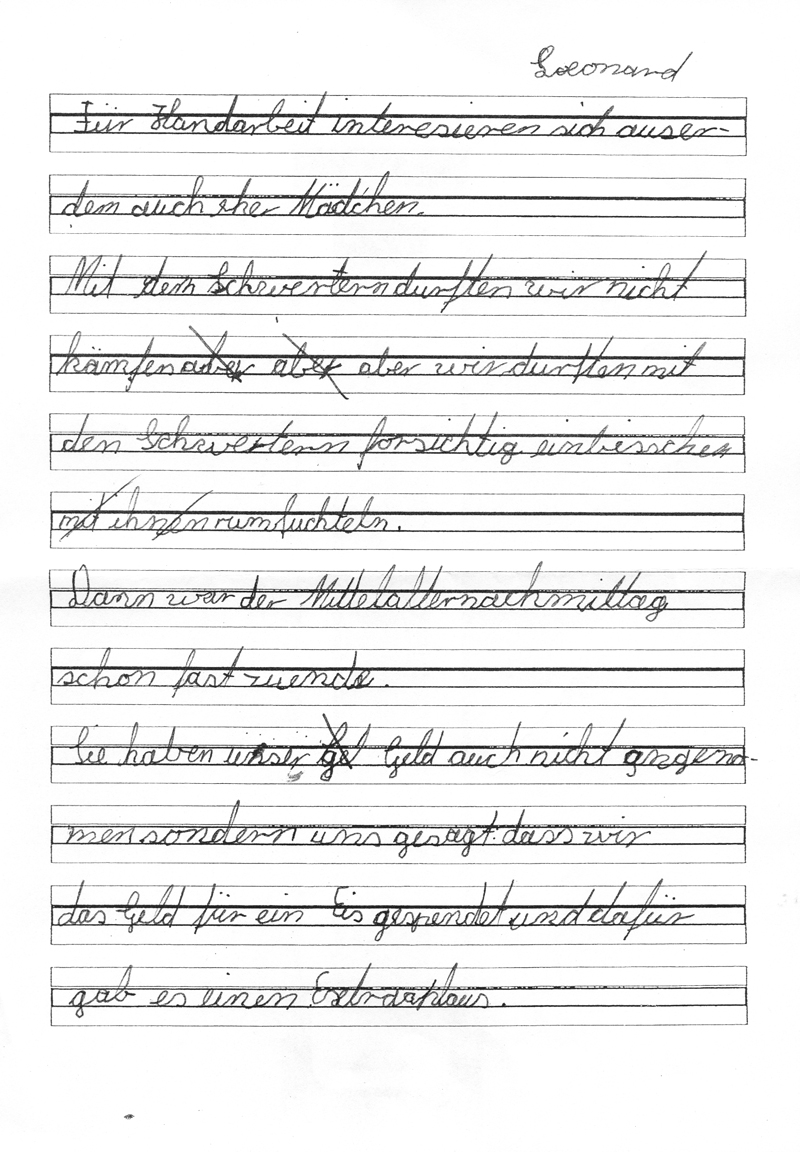 Leonard
Für Handarbeit interesieren sich auser-
dem auch eher Mädchen.
Mit dem Schwertern durften wir nicht
kämfen aber aber aber wir durften mit
den Schwertern forsichtig einbisschen
mit ihnen rumfuchteln.
Dann war der Mittelalternachmittag
schon fast zuende.
Sie haben unser gel Geld auch nicht angeno-
men sondern uns gesagt dass wir
das Geld für ein Eis gespendet und dafür
gab es einen Extrdaplaus.